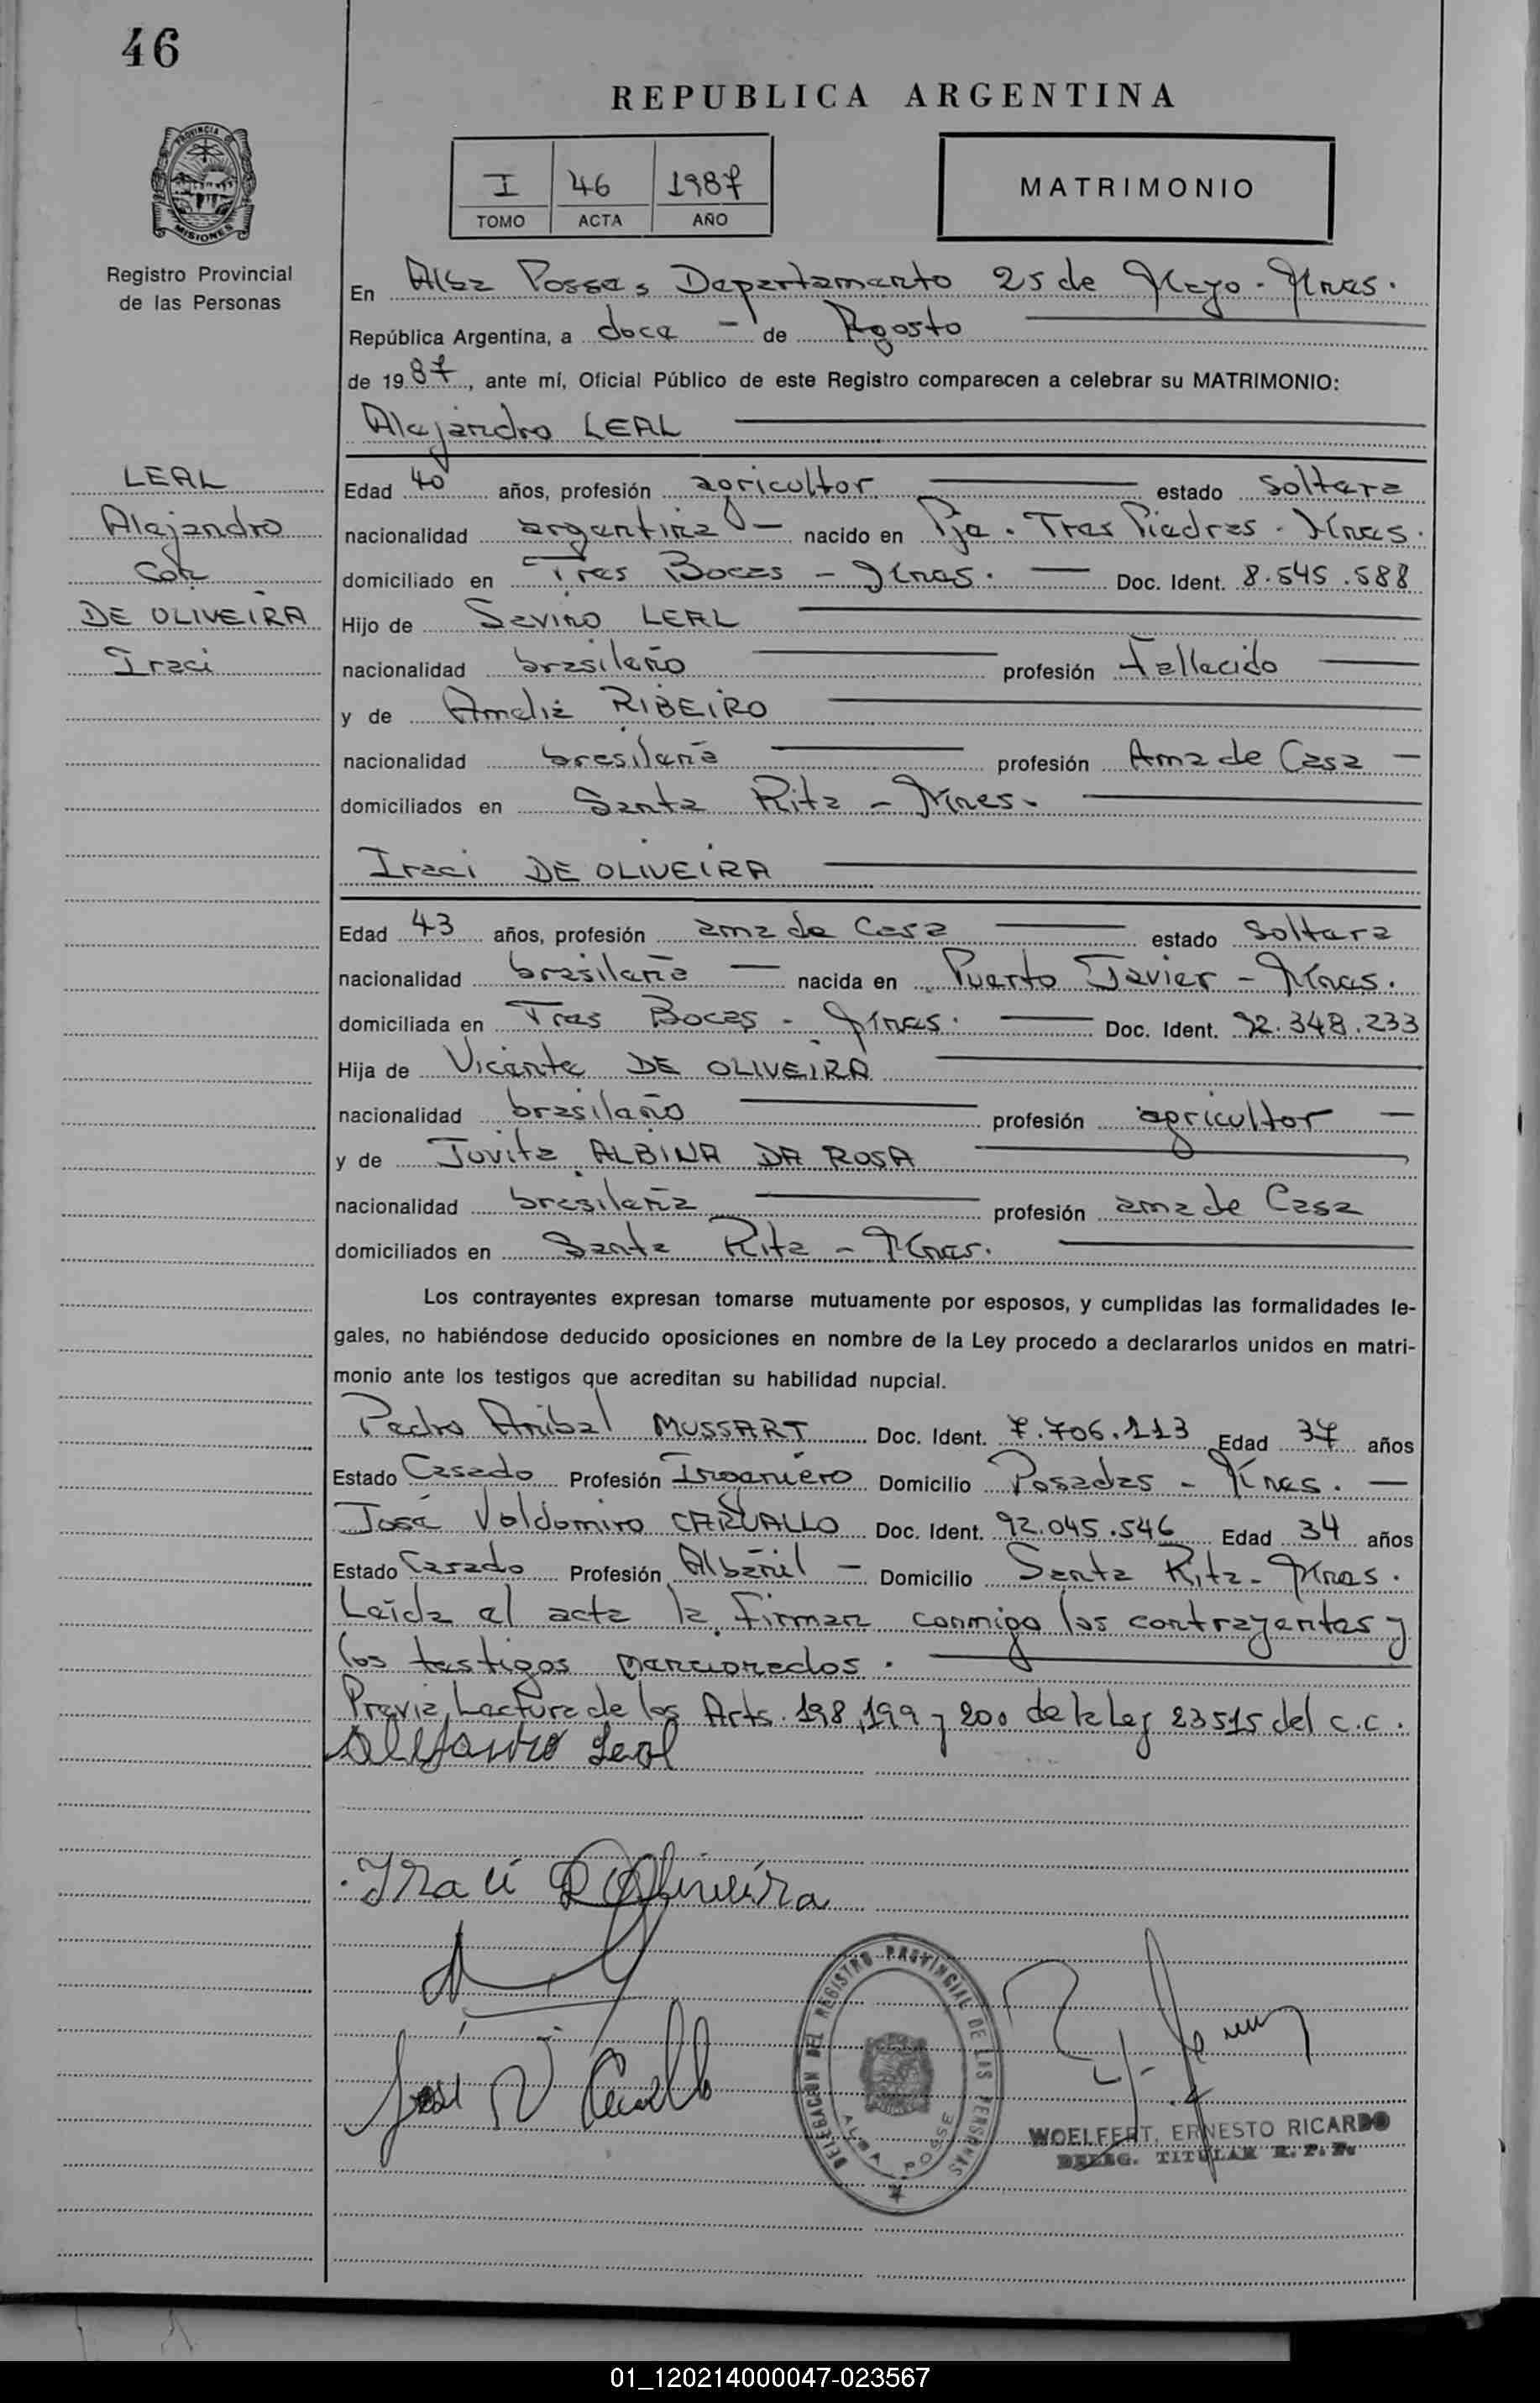 46
REPUBLICA ARGENTINA
I 46 1987
TOMO ACTA AÑO
MATRIMONIO
PROVINCIA DE
MISIONES
Registro Provincial
de las Personas
En Alba Posse, Departamento 25 de Mayo - Mnes.
República Argentina, a doce - de Agosto
de 1987, ante mí, Oficial Público de este Registro comparecen a celebrar su MATRIMONIO:
Alejandro LEAL
LEAL
Alejandro
Con
DE OLIVEIRA
Iraci
Edad 40 años, profesión agricultor estado Soltero
nacionalidad argentina - nacido en Pje. Tres Piedras - Mnes.
domiciliado en Tres Bocas - Mnes. Doc. Ident. 8.545.588
Hijo de Savino LEAL
nacionalidad brasileño profesión Fallecido
y de Amelia RIBEIRO
nacionalidad brasileña profesión Ama de Casa -
domiciliados en Santa Rita - Mnes.
Iraci DE OLIVEIRA
Edad 43 años, profesión ama de Casa estado Soltera
nacionalidad brasileña - nacida en Puerto Javier - Mnes.
domiciliada en Tres Bocas - Mnes. Doc. Ident. 92.348.233
Hija de Vicente DE OLIVEIRA
nacionalidad brasileño profesión agricultor -
y de Jovita ALBINA DA ROSA
nacionalidad brasileña profesión ama de Casa
domiciliados en Santa Rita - Mnes.
Los contrayentes expresan tomarse mutuamente por esposos, y cumplidas las formalidades le-
gales, no habiéndose deducido oposiciones en nombre de la Ley procedo a declararlos unidos en matri-
monio ante los testigos que acreditan su habilidad nupcial.
Pedro Anibal MUSSART Doc. Ident. 7.706.113 Edad 37 años
Estado Casado Profesión Ingeniero Domicilio Posadas - Mnes. -
José Valdomiro CARVALLO Doc. Ident. 92.045.546 Edad 34 años
Estado Casado Profesión Albañil - Domicilio Santa Rita - Mnes.
Leída el acta la firman conmigo los contrayentes y
los testigos mencionados.
Previa Lectura de los Arts. 198, 199 y 200 de la Ley 23515 del c.c.
Alejandro Leal
Iraci D Oliveira
José V Carvallo
DELEGACION DEL REGISTRO PROVINCIAL DE LAS PERSONAS
ALBA POSSE
WOELFERT, ERNESTO RICARDO
DELEG. TITULAR R. P. P.
01_120214000047-023567